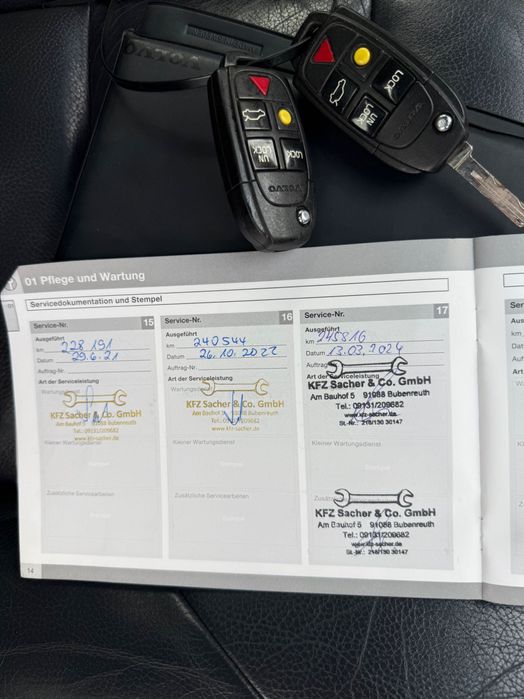 VOLVO
LOCK
UN
LOCK
VOLVO
UN
LOCK
LOCK
VOLVO
01 Pflege und Wartung
Servicedokumentation und Stempel
Service-Nr. 15
Ausgeführt
km 228 191
Datum 29.6.21
Auftrag-Nr.
Art der Serviceleistung
Wartungsdienst
KFZ Sacher & Co. GmbH
Am Bauhof 5 91088 Bubenreuth
Tel.: 09131/209682
www.kfz-sacher.de
Kleiner Wartungsdienst
Stempel
Zusätzliche Servicearbeiten
Stempel
Service-Nr. 16
Ausgeführt
km 240544
Datum 26.10.2022
Auftrag-Nr.
Art der Serviceleistung
KFZ Sacher & Co. GmbH
Am Bauhof 5 91088 Bubenreuth
Tel.: 09131/209682
www.kfz-sacher.de
Kleiner Wartungsdienst
Stempel
Zusätzliche Servicearbeiten
Stempel
Service-Nr. 17
Ausgeführt
km 245816
Datum 13.03.2024
Auftrag-Nr.
Art der Serviceleistung
KFZ Sacher & Co. GmbH
Am Bauhof 5 91088 Bubenreuth
Tel.: 09131/209682
www.kfz-sacher.de
St.-Nr.: 216/130 30147
Kleiner Wartungsdienst
Stempel
KFZ Sacher & Co. GmbH
Am Bauhof 5 91088 Bubenreuth
Tel.: 09131/209682
www.kfz-sacher.de
St.-Nr.: 216/130 30147
14